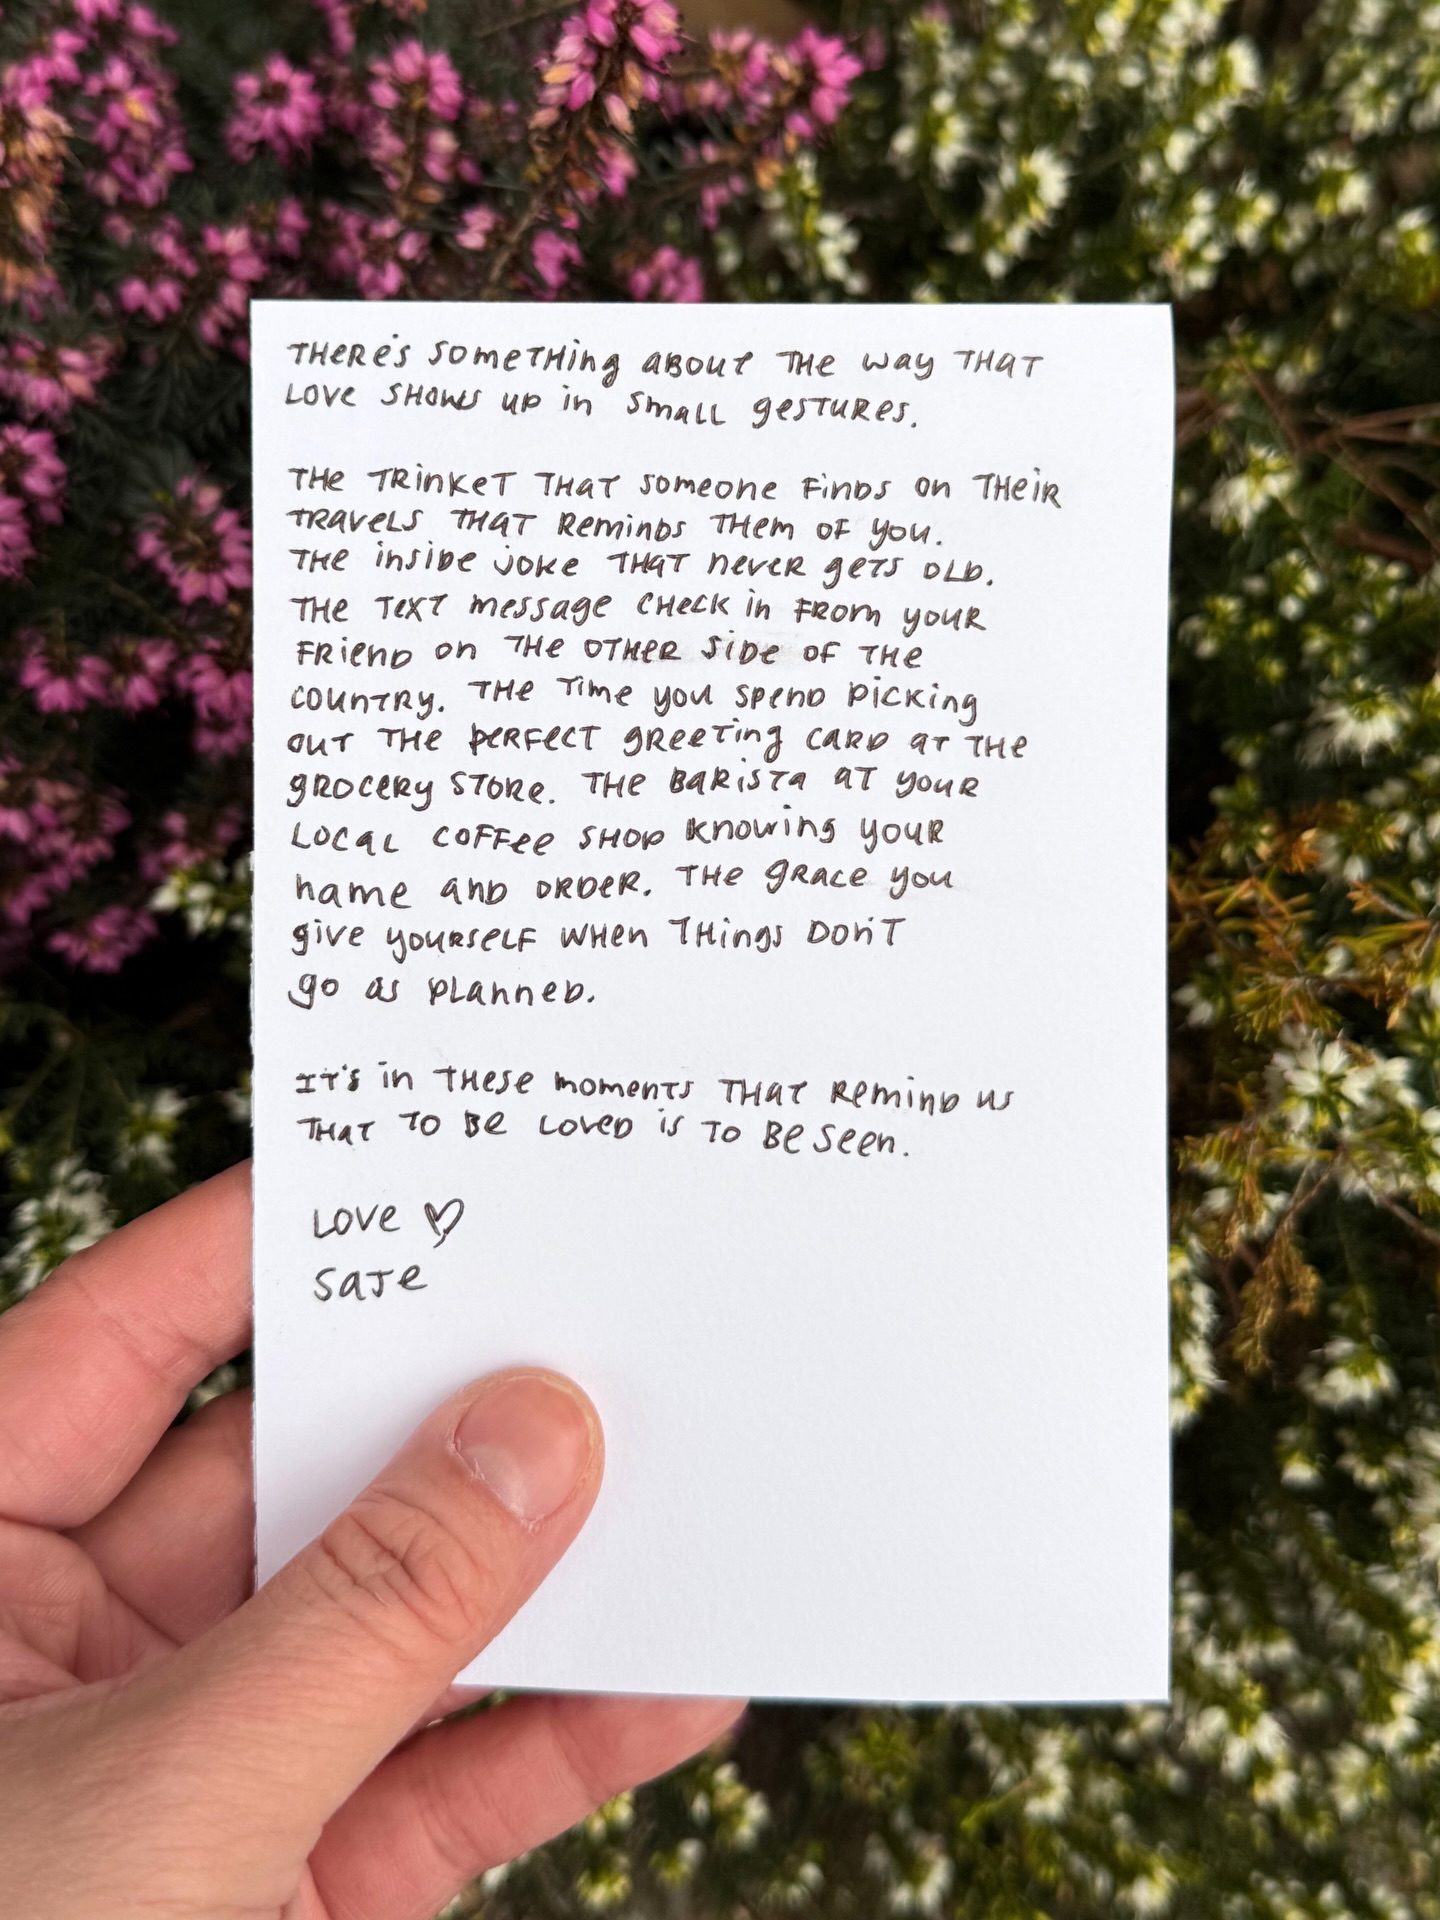 There's something about the way that
love shows up in small gestures.
The trinket that someone finds on their
travels that reminds them of you.
The inside joke that never gets old.
The text message check in from your
friend on the other side of the
country. The time you spend picking
out the perfect greeting card at the
grocery store. The barista at your
local coffee shop knowing your
name and order. The grace you
give yourself when things don't
go as planned.
It's in these moments that remind us
that to be loved is to be seen.
Love ♡
Saje